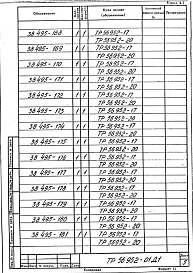 Обозначение
Куда входит
(обозначение)
38 495-168 1 1 ТР 56 952-17
ТР 56 952-20
38 495-169 1 1 ТР 56 952-17
ТР 56 952-20
38 495-170 1 1 ТР 56 952-17
ТР 56 952-20
38 495-171 1 1 ТР 56 952-17
ТР 56 952-20
38 495-172 1 1 ТР 56 952-17
ТР 56 952-20
38 495-173 1 1 ТР 56 952-17
ТР 56 952-20
38 495-174 1 1 ТР 56 952-17
ТР 56 952-20
38 495-175 1 1 ТР 56 952-17
ТР 56 952-20
38 495-176 1 1 ТР 56 952-17
ТР 56 952-20
38 495-177 1 1 ТР 56 952-17
ТР 56 952-20
38 495-178 1 1 ТР 56 952-17
ТР 56 952-20
38 495-179 1 1 ТР 56 952-17
ТР 56 952-20
38 495-180 1 1 ТР 56 952-17
ТР 56 952-20
38 495-181 1 1 ТР 56 952-17
ТР 56 952-20
ТР 56 952-01Д1
Копировал
Формат